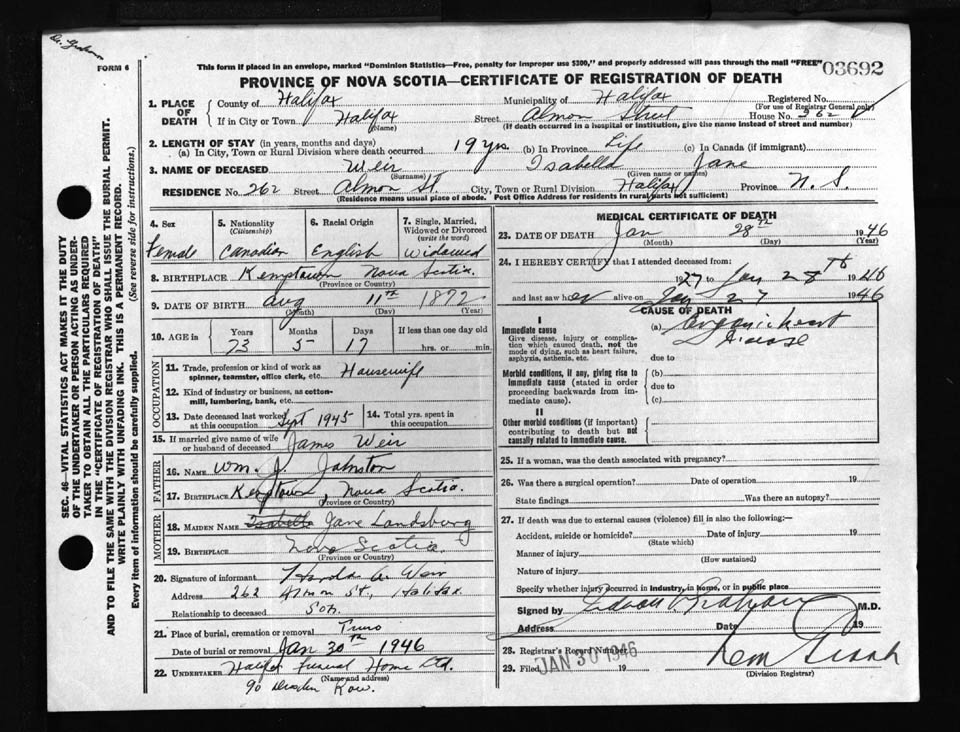 Dr. Graham
FORM 6
This form if placed in an envelope, marked "Dominion Statistics—Free, penalty for improper use $300," and properly addressed will pass through the mail "FREE"
03692
PROVINCE OF NOVA SCOTIA—CERTIFICATE OF REGISTRATION OF DEATH
SEC. 46—VITAL STATISTICS ACT MAKES IT THE DUTY
OF THE UNDERTAKER OR PERSON ACTING AS UNDER-
TAKER TO OBTAIN ALL THE PARTICULARS REQUIRED
IN THE "CERTIFICATE OF REGISTRATION OF DEATH"
AND TO FILE THE SAME WITH THE DIVISION REGISTRAR WHO SHALL ISSUE THE BURIAL PERMIT.
WRITE PLAINLY WITH UNFADING INK. THIS IS A PERMANENT RECORD.
Every item of information should be carefully supplied. (See reverse side for instructions.)
1. PLACE OF DEATH
County of Halifax Municipality of Halifax Registered No.
(For use of Registrar General only)
If in City or Town Halifax Street Almon Street House No. 262
(Name) (If death occurred in a hospital or institution, give the name instead of street and number)
2. LENGTH OF STAY (in years, months and days)
(a) In City, Town or Rural Division where death occurred 19 yrs (b) In Province Life (c) In Canada (if immigrant)
3. NAME OF DECEASED Weir Isabella Jane
(Surname) (Given name or names)
RESIDENCE No. 262 Street Almon St. City, Town or Rural Division Halifax Province N. S.
(Residence means usual place of abode. Post Office Address for residents in rural parts not sufficient)
4. Sex Female
5. Nationality (Citizenship) Canadian
6. Racial Origin English
7. Single, Married, Widowed or Divorced (write the word) Widowed
8. BIRTHPLACE Kemptown Nova Scotia
(Province or Country)
9. DATE OF BIRTH Aug 11th 1872
(Month) (Day) (Year)
10. AGE in Years Months Days If less than one day old
73 5 17 hrs. or min.
OCCUPATION
11. Trade, profession or kind of work as spinner, teamster, office clerk, etc. Housewife
12. Kind of industry or business, as cotton-mill, lumbering, bank, etc.
13. Date deceased last worked at this occupation Sept 1945
14. Total yrs. spent in this occupation
15. If married give name of wife or husband of deceased James Weir
FATHER
16. NAME Wm. J. Johnston
17. BIRTHPLACE Kemptown, Nova Scotia.
(Province or Country)
MOTHER
18. MAIDEN NAME Isabella Jane Landsburg
19. BIRTHPLACE Nova Scotia
(Province or Country)
20. Signature of informant Harold A. Weir
Address 262 Almon St., Halifax.
Relationship to deceased Son.
21. Place of burial, cremation or removal Truro
Date of burial or removal Jan 30th 1946
22. UNDERTAKER Halifax Funeral Home Ltd.
(Name and address)
90 Dresden Row.
MEDICAL CERTIFICATE OF DEATH
23. DATE OF DEATH Jan 28th 1946
(Month) (Day) (Year)
24. I HEREBY CERTIFY that I attended deceased from:
1927 to Jan 28th 1946
and last saw her alive on Jan 27 1946
CAUSE OF DEATH
I
Immediate cause
Give disease, injury or complication which caused death, not the mode of dying, such as heart failure, asphyxia, asthenia, etc.
(a) Organic heart disease
due to
Morbid conditions, if any, giving rise to immediate cause (stated in order proceeding backwards from immediate cause).
(b)
due to
(c)
II
Other morbid conditions (if important) contributing to death but not causally related to immediate cause.
25. If a woman, was the death associated with pregnancy?
26. Was there a surgical operation? Date of operation 19
State findings Was there an autopsy?
27. If death was due to external causes (violence) fill in also the following:—
Accident, suicide or homicide? Date of injury 19
(State which)
Manner of injury
(How sustained)
Nature of injury
Specify whether injury occurred in industry, in home, or in public place
Signed by Graham M.D.
Address Date 19
28. Registrar's Record Number
29. Filed 19
JAN 30 1946
(Division Registrar)